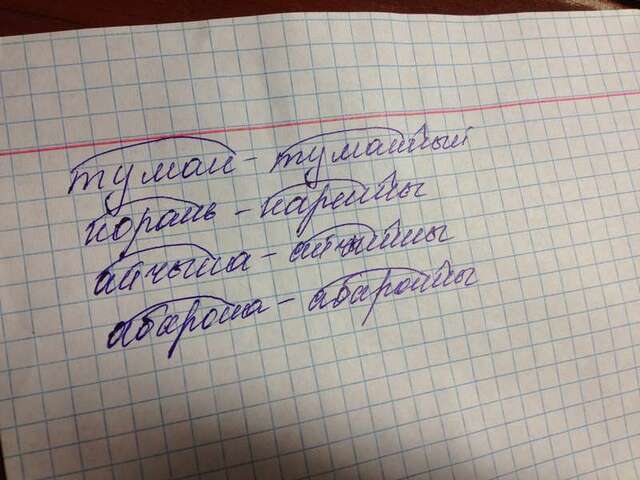 туман - туманный
корань - карэнны
айчына - айчынны
абарона - абаронны